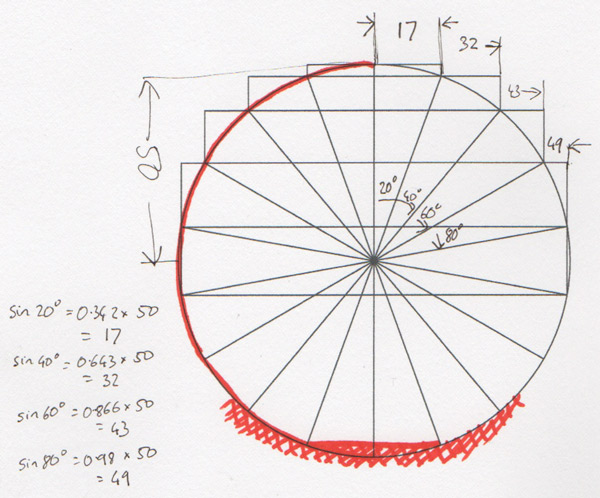 17
32
43
49
50
20°
40°
60°
80°
sin 20° = 0.342 × 50
= 17
sin 40° = 0.643 × 50
= 32
sin 60° = 0.866 × 50
= 43
sin 80° = 0.98 × 50
= 49